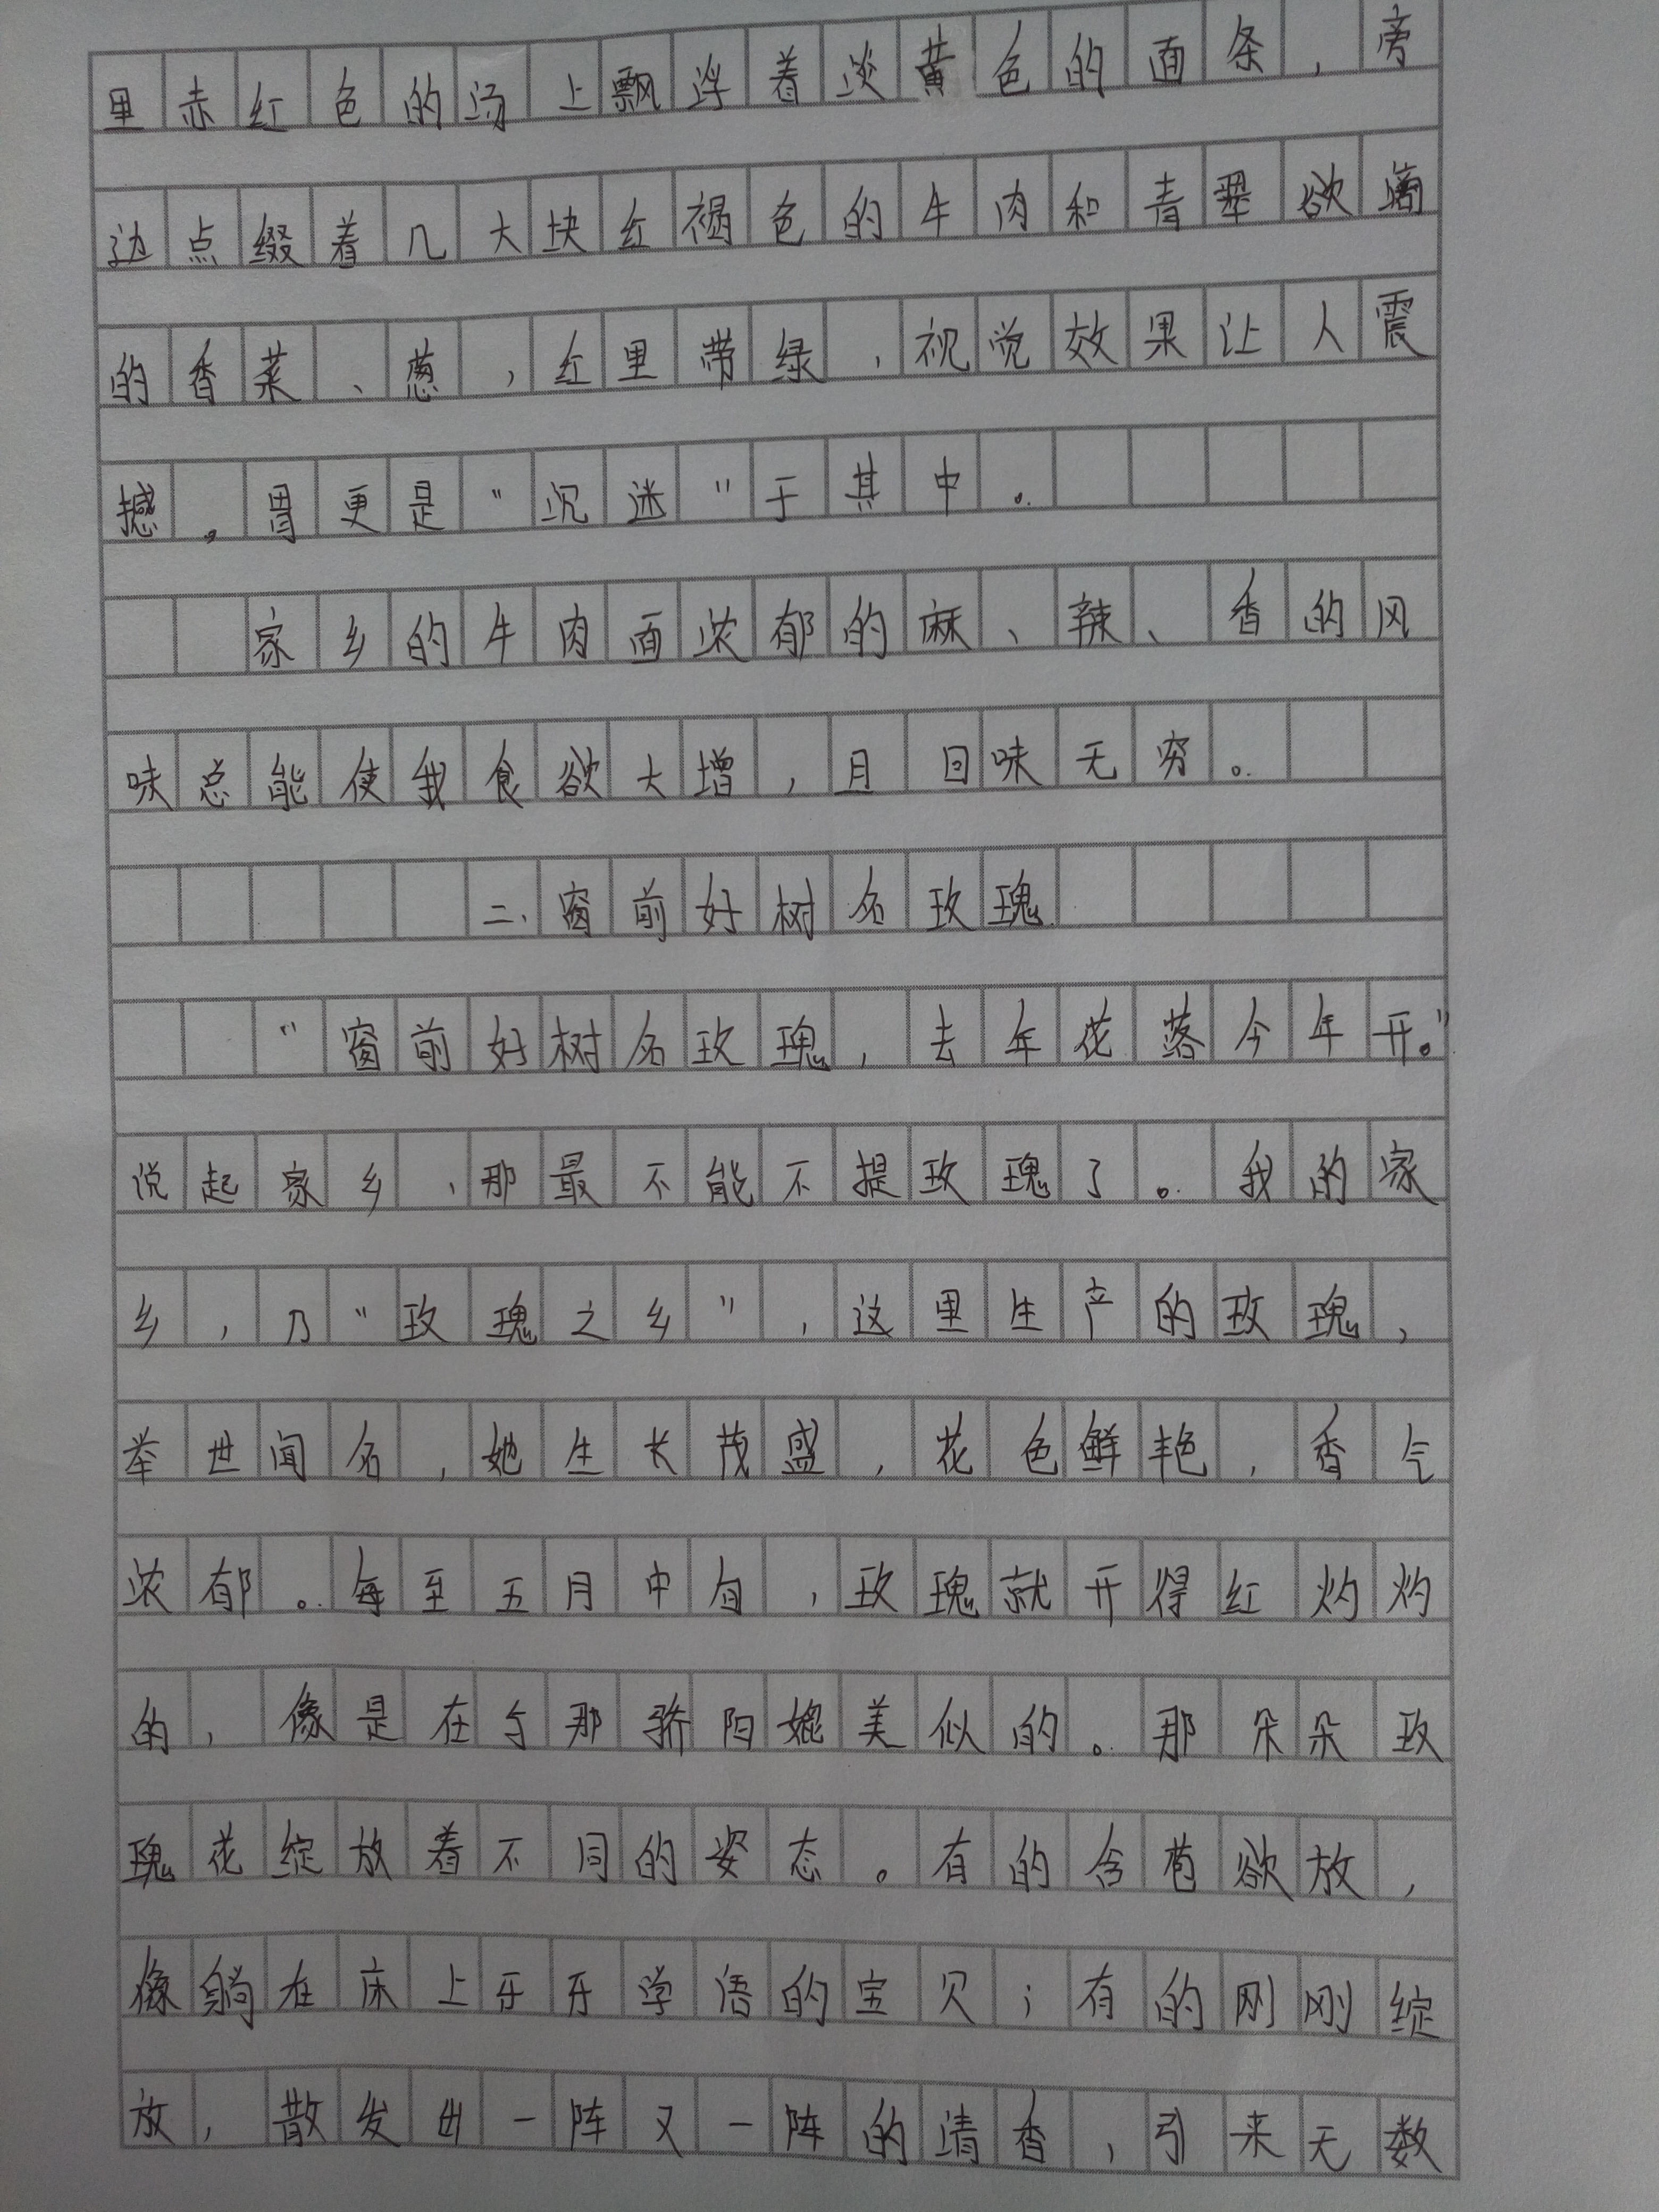 里赤红色的汤上飘浮着淡黄色的面条，旁
边点缀着几大块红褐色的牛肉和青翠欲滴
的香菜、葱，红里带绿，视觉效果让人震
撼。胃更是“沉迷”于其中。
家乡的牛肉面浓郁的麻、辣、香的风
味总能使我食欲大增，且回味无穷。
二、窗前好树名玫瑰
“窗前好树名玫瑰，去年花落今年开。”
说起家乡，那最不能不提玫瑰了。我的家
乡，乃“玫瑰之乡”，这里生产的玫瑰，
举世闻名，她生长茂盛，花色鲜艳，香气
浓郁。每至五月中旬，玫瑰就开得红灼灼
的，像是在与那骄阳媲美似的。那朵朵玫
瑰花绽放着不同的姿态。有的含苞欲放，
像躺在床上牙牙学语的宝贝；有的刚刚绽
放，散发出一阵又一阵的清香，引来无数